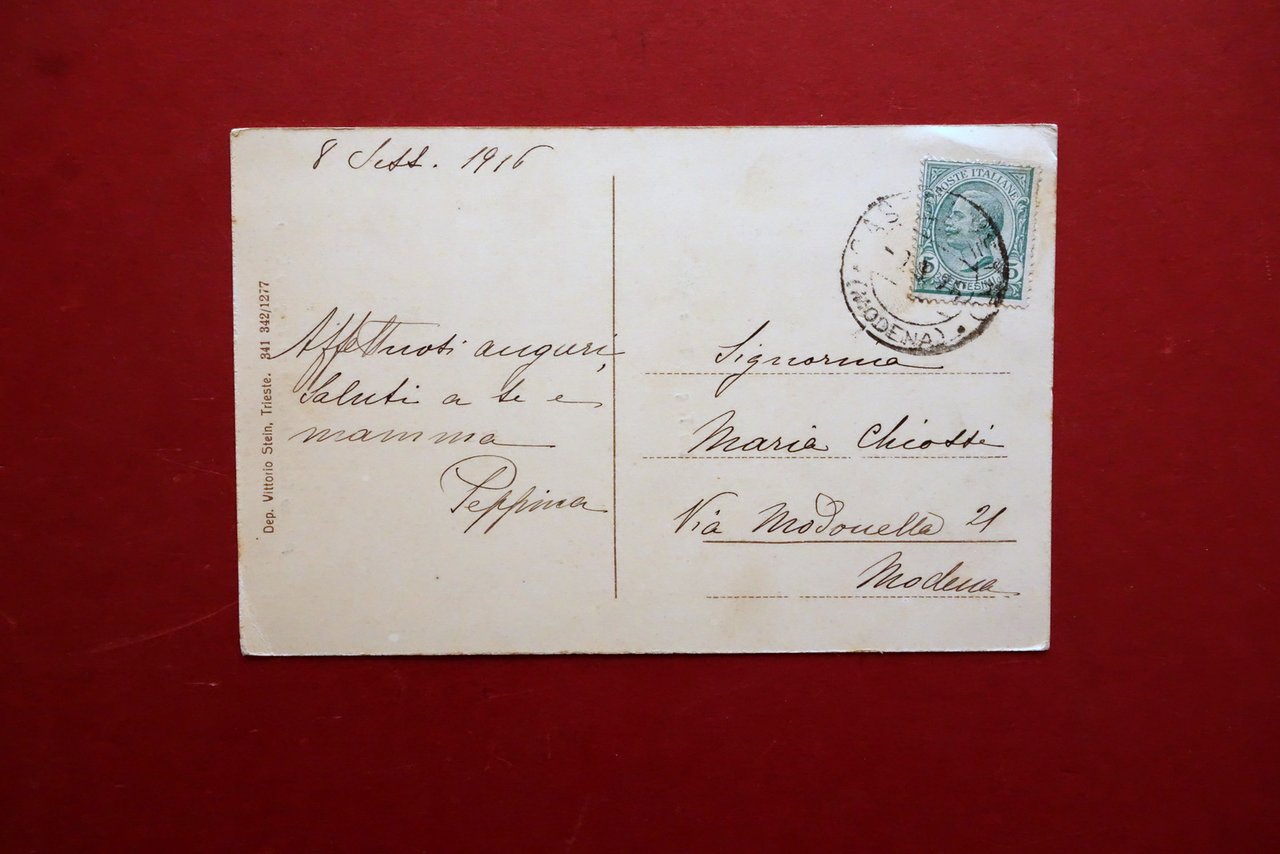 8 Sett. 1916
Affettuosi auguri,
Saluti a te e
mamma
Peppina
Dep. Vittorio Stein, Trieste. 341 342/1277
POSTE ITALIANE
5 CENTESIMI 5
(MODENA)
Signorina
Maria Chiossi
Via Modonella 21
Modena